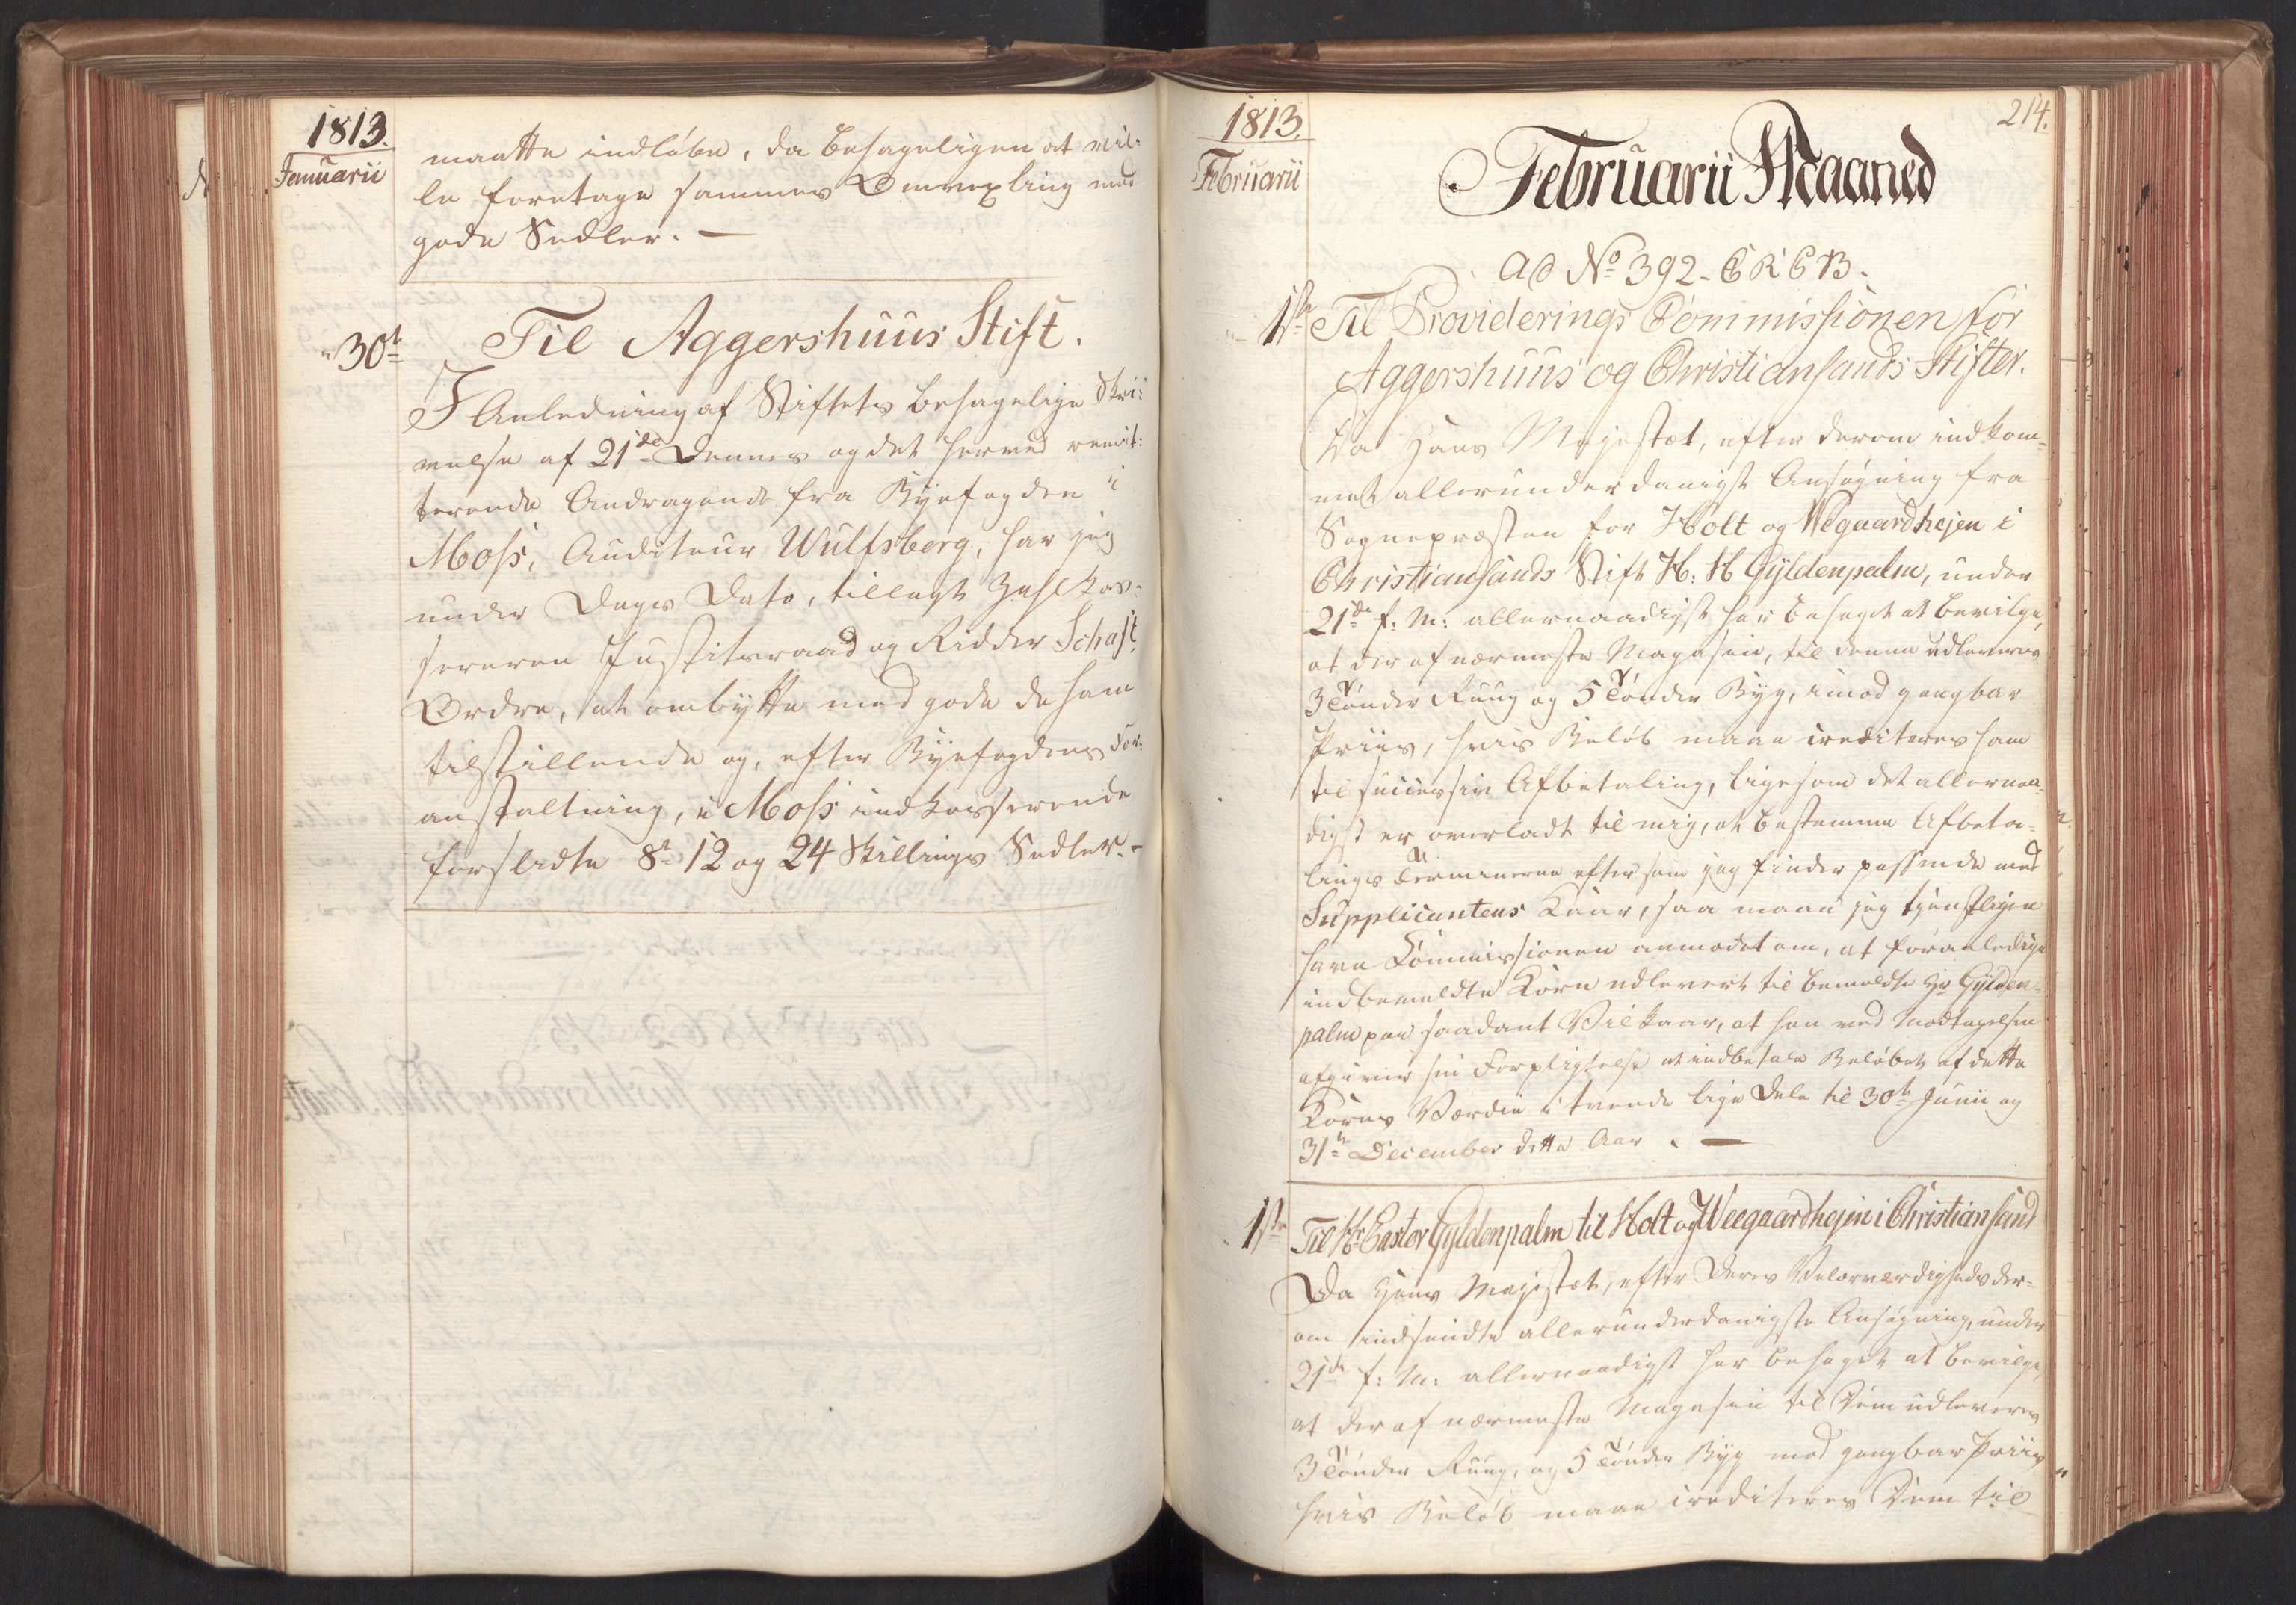 1813.
Januarii
maatte indløbe, da behageligen at vil-
le foretage sammes Omvexling med
gode Sedler. —
30te
Til Aggershuus Stift.
I Anledning af Stiftets behagelige Skri-
velse af 21de Dennes og det herved remit-
terende Andragende fra Byefogden i
Moss, Auditeur Wulfsberg, har jeg
under Dags Dato, tillagt Zahlkas-
sereren Justitsraad og Ridder Schaft
Ordre, at ombytte med gode de ham
tilstillende og, efter Byefogdens For-
anstaltning, i Moss indkasserende
forslidte 8te 12 og 24 Skillings Sedler. —
1813.
Februarii
214.
Februarii Maaned
Ad No 392 - C R C B.
1ste
Til Providerings Commissionen for
Aggershuus og Christiansands Stifter.
Da Hans Majestæt, efter derom indkom-
met allerunderdanigst Ansøgning fra
Sognepræsten for Holt og Wegaardhejen i
Christiansands Stift H: H Gyldenpalm, under
21de f: M: allernaadigst har behaget at bevilge,
at der af nærmeste Magasin, til denne udleveres
3 Tønder Ruug og 5 Tønder Byg, imod gangbar
Priis, hvis Beløb maae crediteres ham
til successiv Afbetaling, ligesom det allernaa-
digst er overladt til mig, at bestemme Afbeta-
lings Terminerne eftersom jeg finder passende med
Supplicantens Kaar, saa maae jeg tjenstligen
have Commissionen anmodet om, at foranledige
indbemeldte Korn udlevert til bemeldte Hr Gylden-
palm paa saadant Vilkaar, at han ved Modtagelsen
afgiver sin Forpligtelse at indbetale Beløbet af dette
Korns Værdie i tvende lige Dele til 30te Junii og
31te December dette Aar. —
1ste
Til Hr Pastor Gyldenpalm til Holt og Weegaardhejen i Christiansand
Da Hans Majestæt, efter Deres Velærværdigheds der-
om indsendte allerunderdanigste Ansøgning, under
21de f: M: allernaadigst har behaget at bevilge,
at der af nærmeste Magasin til Dem udleveres
3 Tønder Ruug, og 5 Tønder Byg mod gangbar Priis
hvis Beløb maae crediteres Dem til